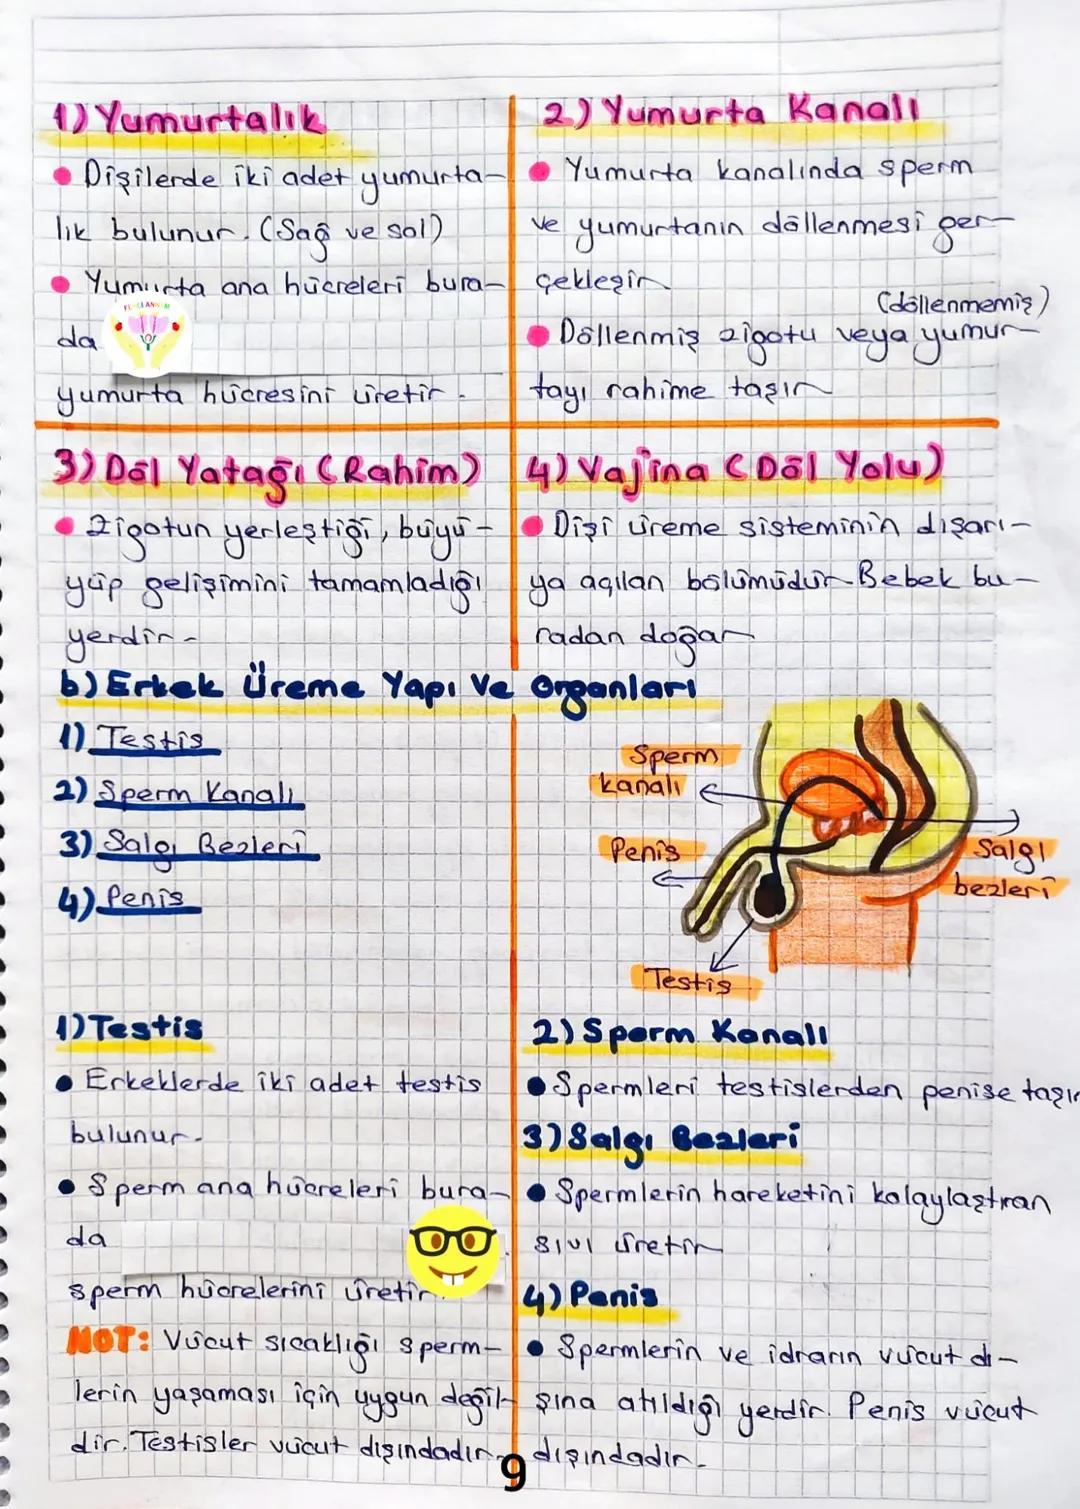 1) Yumurtalık
● Dişilerde iki adet yumurta-
lık bulunur. (Sağ ve sol)
● Yumurta ana hücreleri bura-
da
yumurta hücresini üretir.
2) Yumurta Kanalı
● Yumurta kanalında sperm
ve yumurtanın döllenmesi ger-
çekleşir
(döllenmemiş)
● Döllenmiş zigotu veya yumur-
tayı rahime taşır
3) Döl Yatağı (Rahim)
● Zigotun yerleştiği, büyü-
yüp gelişimini tamamladığı
yerdir.
4) Vajina (Döl Yolu)
● Dişi üreme sisteminin dışarı-
ya açılan bölümüdür. Bebek bu-
radan doğar
b) Erkek Üreme Yapı Ve Organları
1) Testis
2) Sperm Kanalı
3) Salgı Bezleri
4) Penis
Sperm
kanalı
Penis
Salgı
bezleri
Testis
1) Testis
● Erkeklerde iki adet testis
bulunur.
● Sperm ana hücreleri bura-
da
sperm hücrelerini üretir.
NOT: Vücut sıcaklığı sperm-
lerin yaşaması için uygun değil-
dir. Testisler vücut dışındadır.
2) Sperm Kanalı
● Spermleri testislerden penise taşır
3) Salgı Bezleri
● Spermlerin hareketini kolaylaştıran
sıvı üretir
4) Penis
● Spermlerin ve idrarın vücut dı-
şına atıldığı yerdir. Penis vücut
dışındadır.
9